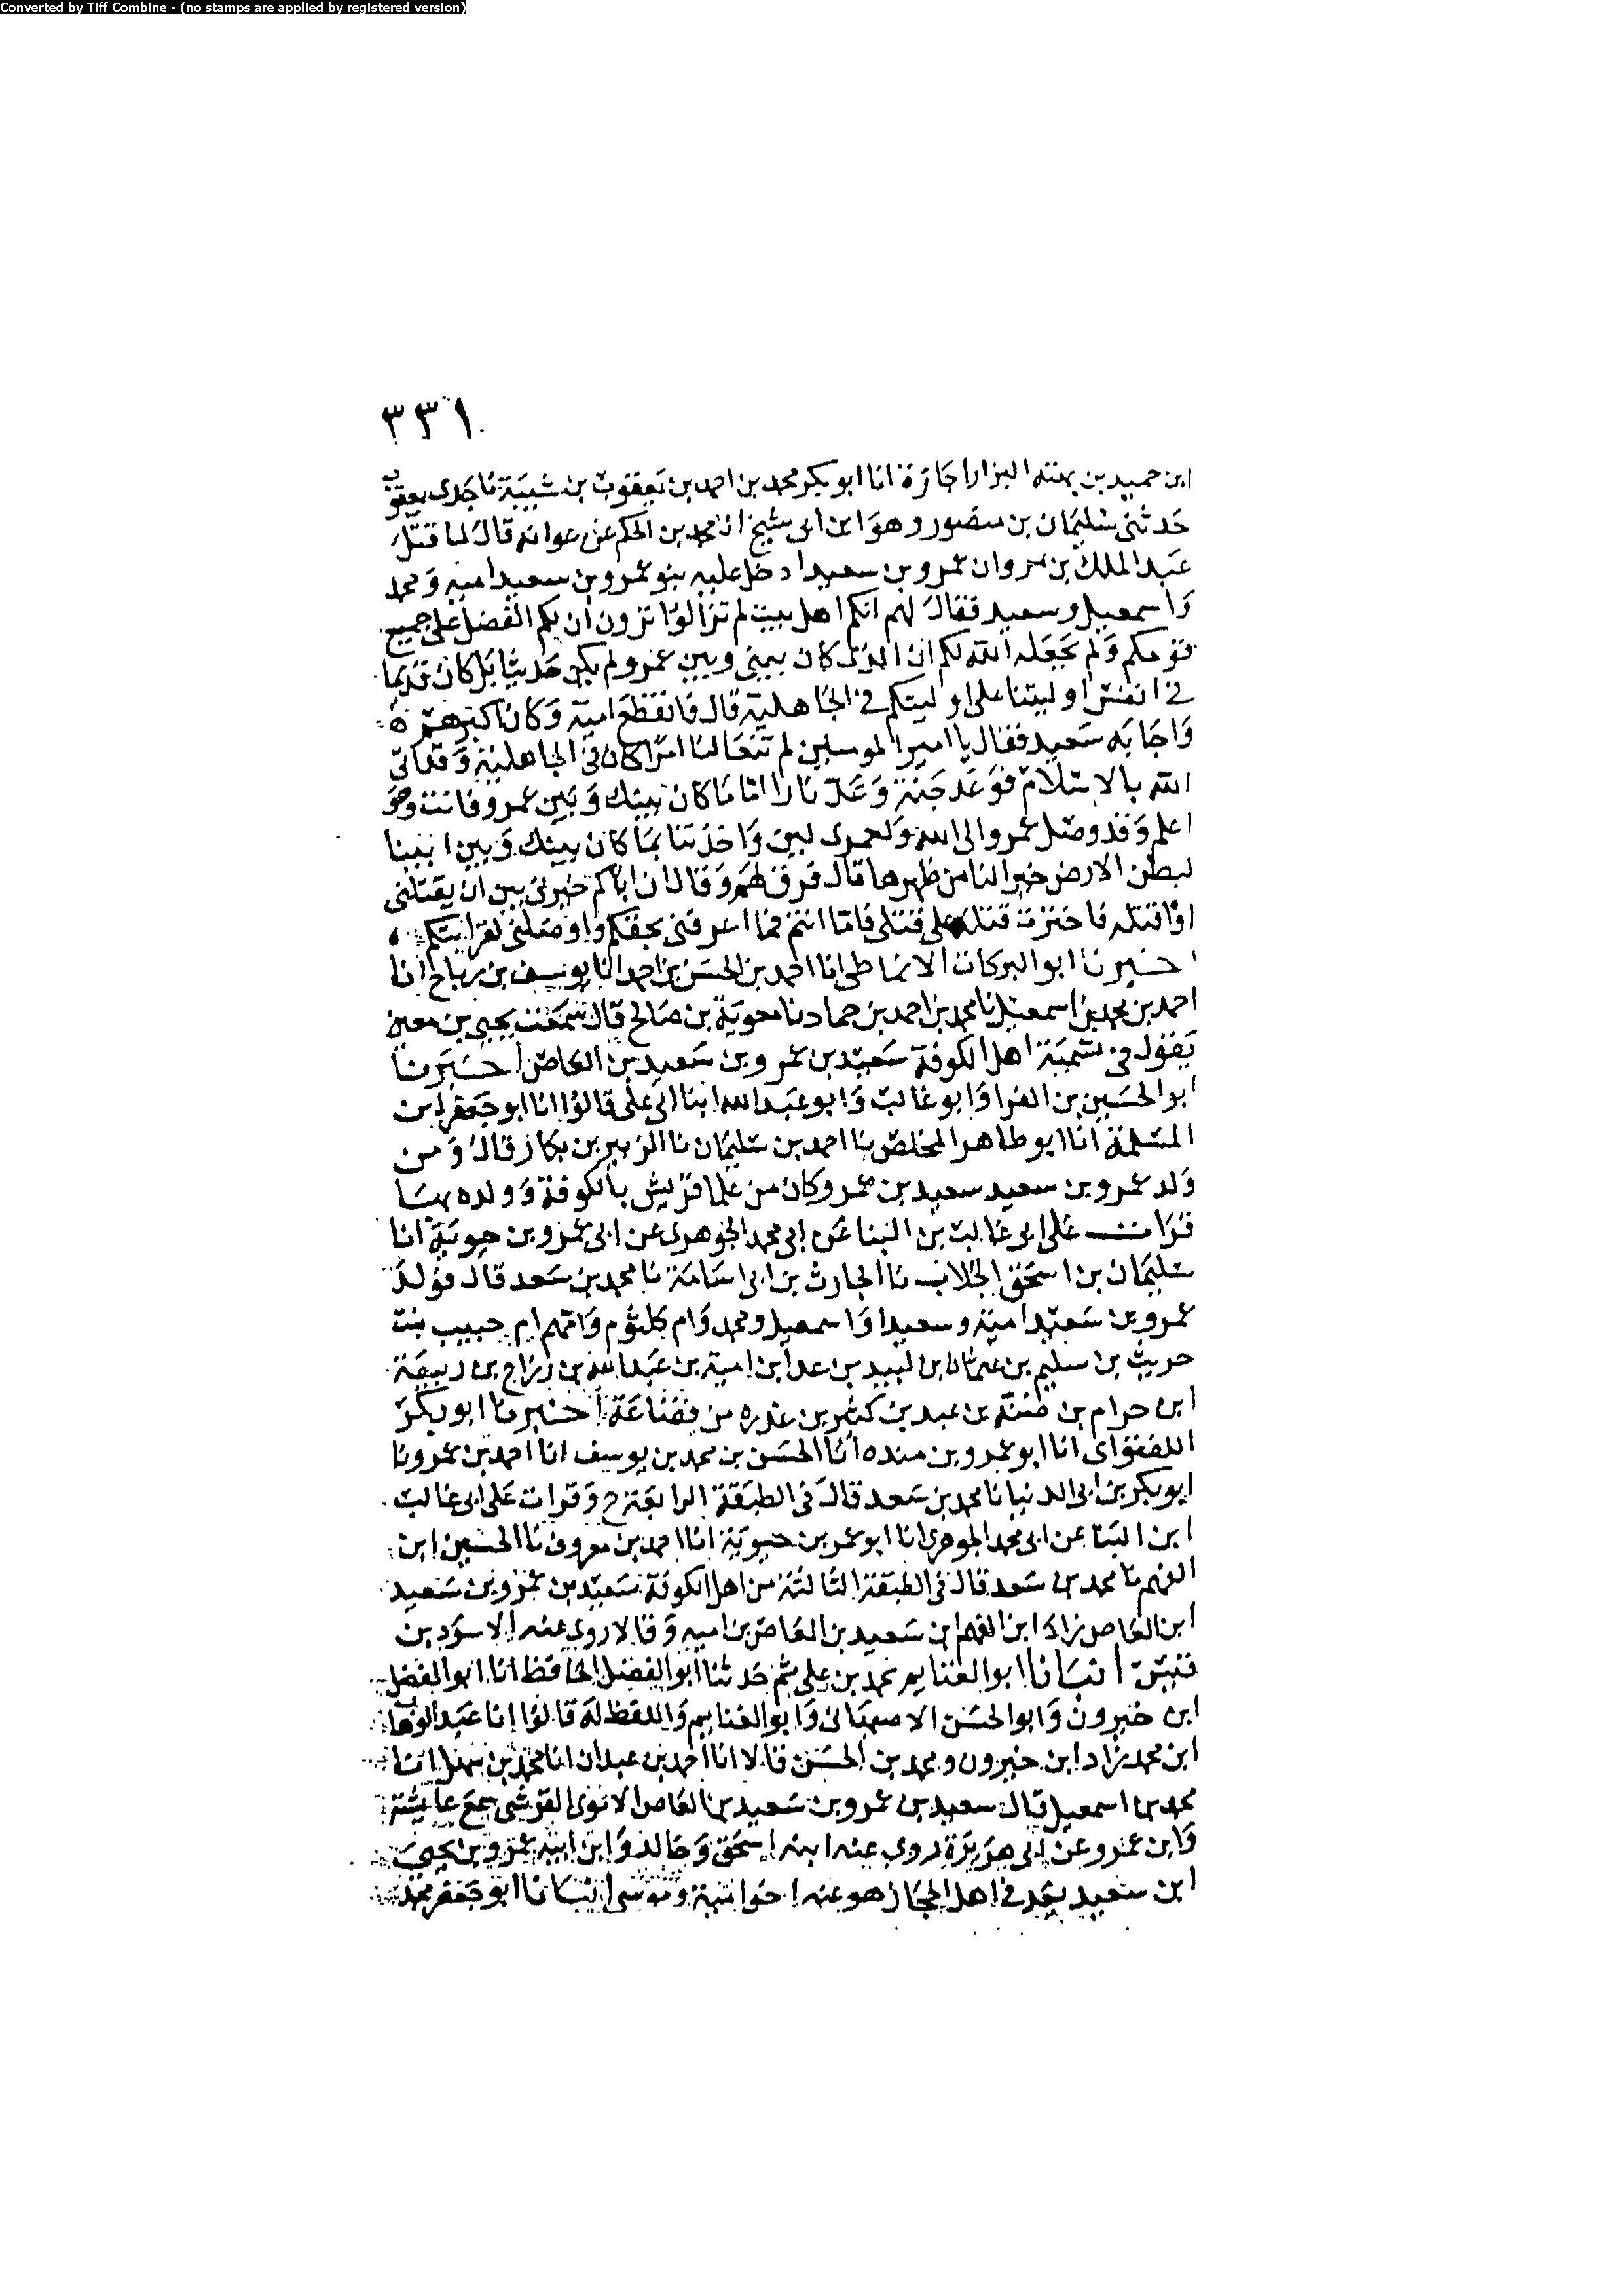 Converted by Tiff Combine - (no stamps are applied by registered version)
٣٣١
ابن حميد بن بهته البزار اجازة انا ابو بكر محمد بن احمد بن يعقوب بن شيبة نا جدى يعقوب
حدثنى سليمان بن منصور وهو ابن ابى شيخ انا محمد بن الحكم عن عوانه قال لما قتل
عبد الملك بن مروان عمرو بن سعيد ادخل عليه بنو عمرو بن سعيد اميه ومحمد
واسمعيل وسعيد فقال لهم انكم اهل بيت لم تزالوا ترون ان لكم الفضل على جميع
قومكم ولم يجعله الله لكم ان الذى كان بينى وبين عمرو لم يكن حديثا بل كان قديما
فى انفس اوليتنا على اوليتكم فى الجاهلية قال فانقطع امية وكان اكبرهم
واجابه سعيد فقال يا امير المومسلين لم تنعا لنا امرا كان فى الجاهلية وقد اتى
الله بالاسلام فوعد جنة وعد نارا اما ما كان بينك وبين عمرو فانت وهو
اعلم وقد وصل عمرو الى الله ولعمرى لين واخذتنا بما كان بينك وبين ابينا
لبطن الارض خير لنا من ظهرها قال فرق لهم وقال ان اباكم خيرنى بين ان يقتلنى
او اقتله فاخترت قتله على قتلى فاما انتم فما اعرفنى بحقكم واوصلنى لقرابتكم
اخبرنا ابو البركات الانماطى انا احمد بن الحسن بن احمد انا يوسف بن رباح انا
احمد بن محمد بن اسمعيل نا محمد بن احمد بن حماد نا معوية بن صالح قال سمعت يحيى بن معين
يقول فى تسمية اهل الكوفة سعيد بن عمرو بن سعيد بن العاص اخبرنا
ابو الحسين بن الفرا وابو غالب وابو عبد الله ابنا ابى على قالوا انا ابو جعفر ابن
المسلمة انا ابو طاهر المخلص نا احمد بن سليمان نا الزبير بن بكار قال ومن
ولد عمرو بن سعيد سعيد بن عمرو وكان من علما قريش بالكوفة وولده بها
قرات على ابى غالب بن البنا عن ابى محمد الجوهرى عن ابى عمرو بن حيوية انا
سليمان بن اسحق الجلاب نا الحارث بن ابى اسامة نا محمد بن سعد قال فولد
عمرو بن سعيد امية وسعيدا واسمعيل ومحمد وام كلثوم وامهم ام حبيب بنت
حريث بن سليم بن عثمان بن لبيد بن عدا ابن امية بن عبد الله بن رزاح بن ربيعة
ابن حرام بن ضنه بن عبد بن كثير بن عذره من قضاعة اخبرنا ابو بكر
اللفتوانى انا ابو عمرو بن منده انا الحسن بن محمد بن يوسف انا احمد بن عمرو نا
ابو بكر بن ابى الدنيا نا محمد بن سعد قال فى الطبقة الرابعة ح وقرات على ابى غالب
ابن البنا عن ابى محمد الجوهرى انا ابو عمر بن حيوية انا احمد بن معروف نا الحسين ابن
الفهم نا محمد بن سعد قال فى الطبقة الثالثة من اهل الكوفة سعيد بن عمرو بن سعيد
ابن العاص زاد ابن الفهم ابن سعيد بن العاص بن اميه وقالا روى عنه الاسود بن
قيس انبانا ابو الغنايم محمد بن على ثم حدثنا ابو الفضل الحافظ انا ابو الفضل
ابن خيرون وابو الحسن الاصبهانى وابو الغنايم واللفظ له قالوا انا عبد الوهاب
ابن محمد زاد ابن خيرون ومحمد بن الحسن قالا انا احمد بن عبدان انا محمد بن سهل انا
محمد بن اسمعيل قال سعيد بن عمرو بن سعيد بن العاص الاموى القرشى سمع عايشة
وابن عمرو عن ابى هريرة روى عنه ابنه اسحق وخالد وابن ابيه عمرو بن يحيى
ابن سعيد يعد فى اهل الحجاز هو عنه اخو امية وموسى انبانا ابو جعفر محمد